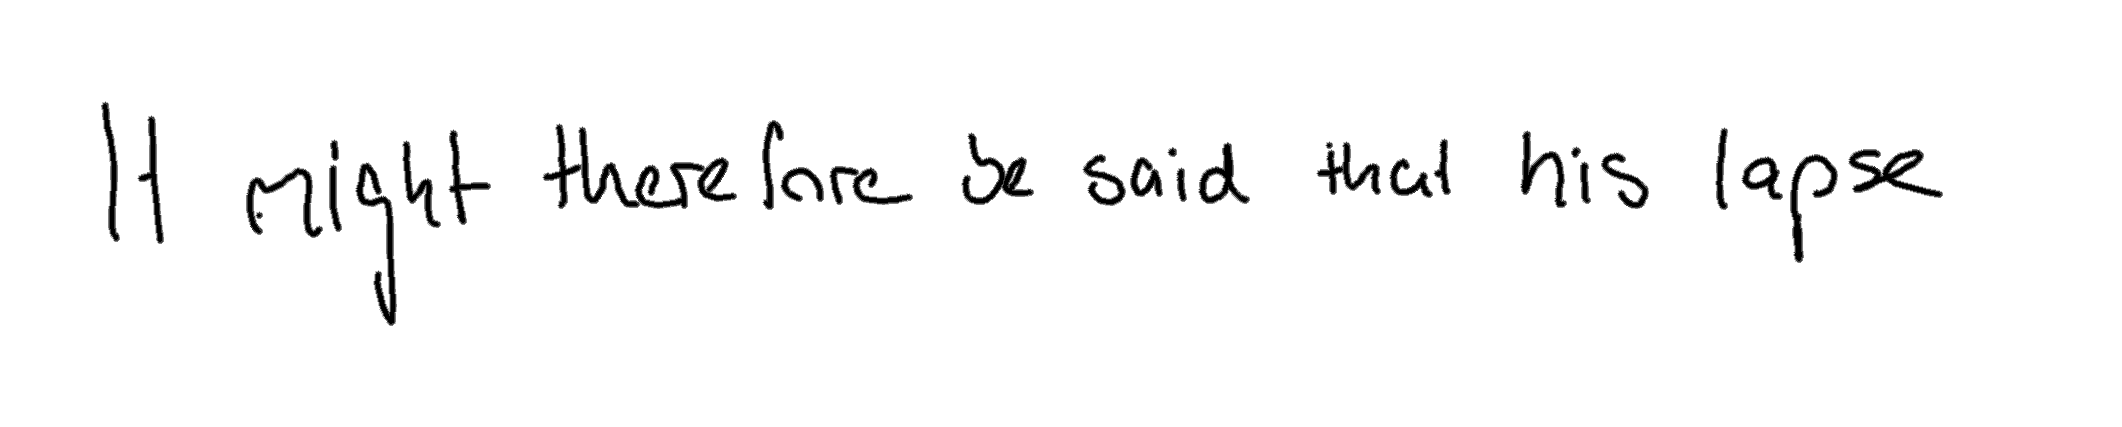 It might therefore be said that his lapse